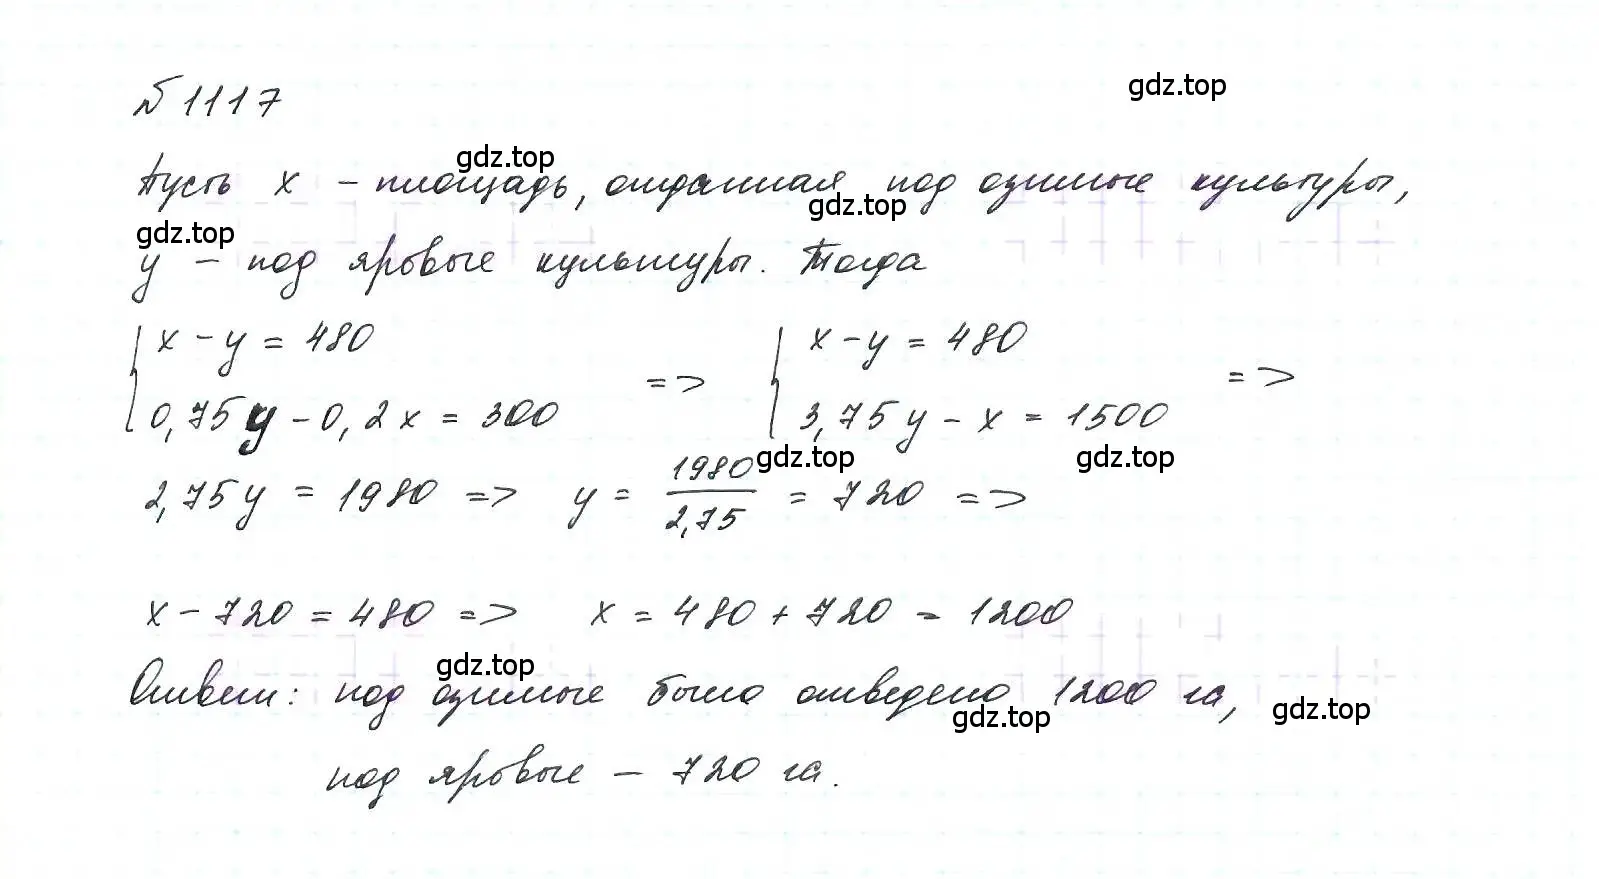 № 1117
gdz.top
gdz.top
Пусть x – площадь, отданная под озимые культуры,
gdz.top
gdz.top
y – под яровые культуры. Тогда
{ x - y = 480 => { x - y = 480 =>
0,75y - 0,2x = 300 3,75y - x = 1500
gdz.top gdz.top
2,75y = 1980 => y = 1980/2,75 = 720 =>
x - 720 = 480 => x = 480 + 720 = 1200
gdz.top
Ответ: под озимые было отведено 1200 га,
gdz.top gdz.top
под яровые – 720 га.